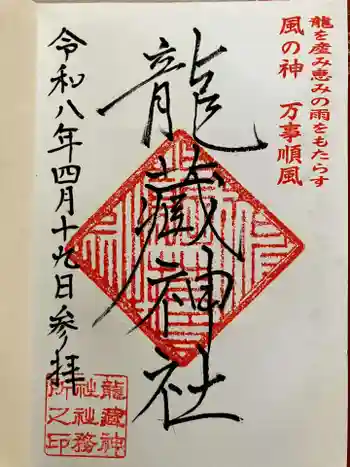 龍を産み恵みの雨をもたらす
風の神　万事順風
龍藏神社
令和八年四月十九日参拝
龍藏神
社社務
所之印